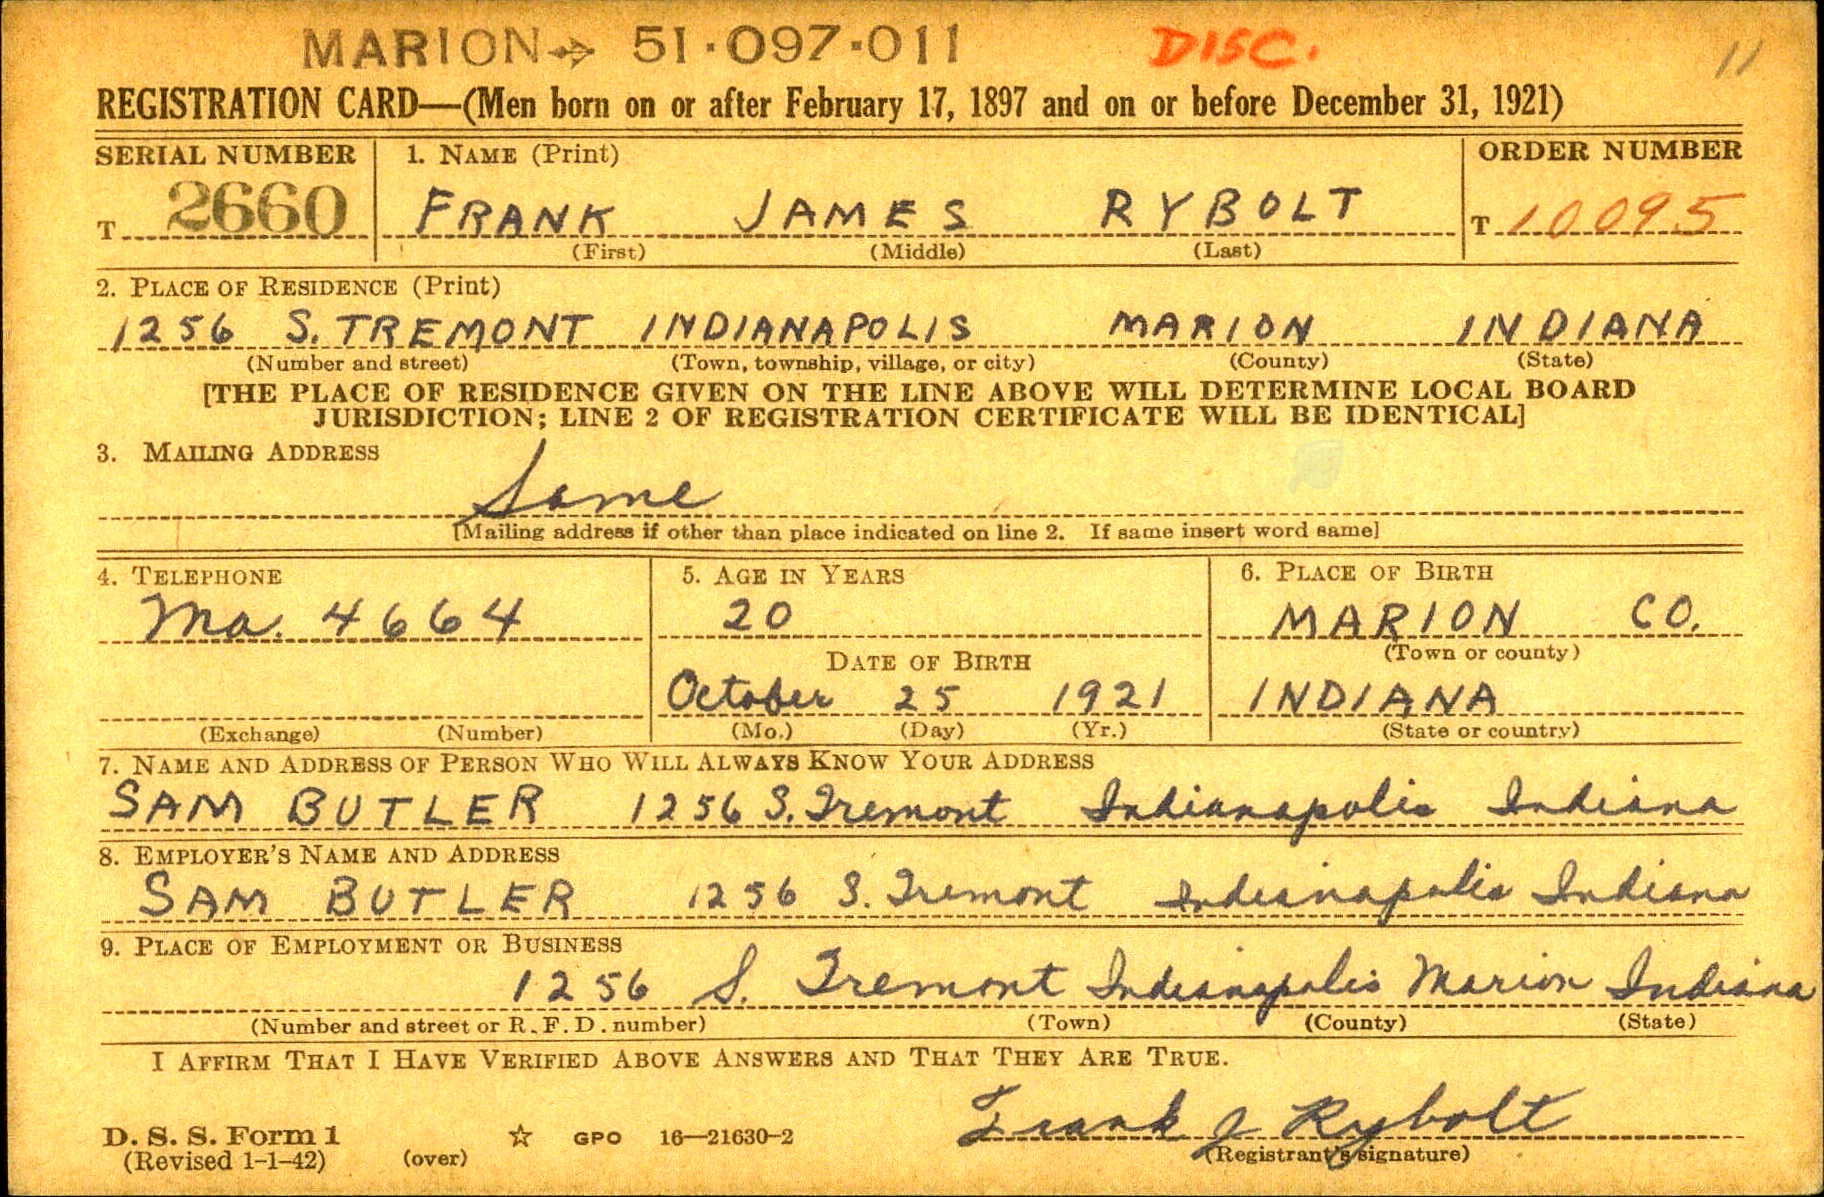 MARION→ 51·097·011 DISC. 11
REGISTRATION CARD—(Men born on or after February 17, 1897 and on or before December 31, 1921)
SERIAL NUMBER 1. NAME (Print) ORDER NUMBER
T 2660 FRANK JAMES RYBOLT T 10095
(First) (Middle) (Last)
2. PLACE OF RESIDENCE (Print)
1256 S. TREMONT INDIANAPOLIS MARION INDIANA
(Number and street) (Town, township, village, or city) (County) (State)
[THE PLACE OF RESIDENCE GIVEN ON THE LINE ABOVE WILL DETERMINE LOCAL BOARD
JURISDICTION; LINE 2 OF REGISTRATION CERTIFICATE WILL BE IDENTICAL]
3. MAILING ADDRESS
Same
[Mailing address if other than place indicated on line 2. If same insert word same]
4. TELEPHONE 5. AGE IN YEARS 6. PLACE OF BIRTH
Ma. 4664 20 MARION CO.
DATE OF BIRTH (Town or county)
October 25 1921 INDIANA
(Exchange) (Number) (Mo.) (Day) (Yr.) (State or country)
7. NAME AND ADDRESS OF PERSON WHO WILL ALWAYS KNOW YOUR ADDRESS
SAM BUTLER 1256 S. Tremont Indianapolis Indiana
8. EMPLOYER'S NAME AND ADDRESS
SAM BUTLER 1256 S. Tremont Indianapolis Indiana
9. PLACE OF EMPLOYMENT OR BUSINESS
1256 S. Tremont Indianapolis Marion Indiana
(Number and street or R. F. D. number) (Town) (County) (State)
I AFFIRM THAT I HAVE VERIFIED ABOVE ANSWERS AND THAT THEY ARE TRUE.
Frank J Rybolt
D. S. S. Form 1 ☆ GPO 16—21630-2
(Revised 1-1-42) (over) (Registrant's signature)